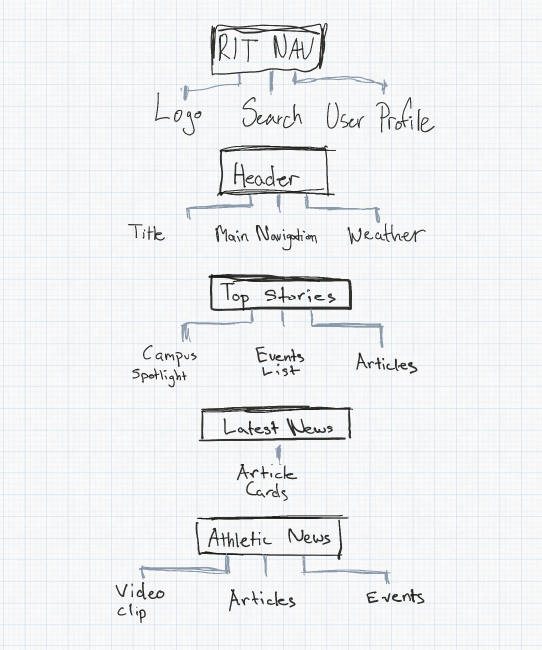 RIT NAV
Logo Search User Profile
Header
Title Main Navigation Weather
Top Stories
Campus Spotlight
Events List
Articles
Latest News
Article
Cards
Athletic News
Video
Clip
Articles
Events